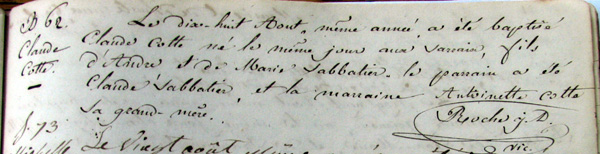 B 62
Claude
Cotte.
Le dix-huit Aout, même année, a été baptisé
Claude Cotte né le même jour aux Sarrain, fils
d'André et de Marie Sabbatier. le parain a été
Claude Sabbatier, et la marraine Antoinette Cotte
sa grand-mère.
Roche j. D.
vic.
f. 73
Le Vingt août